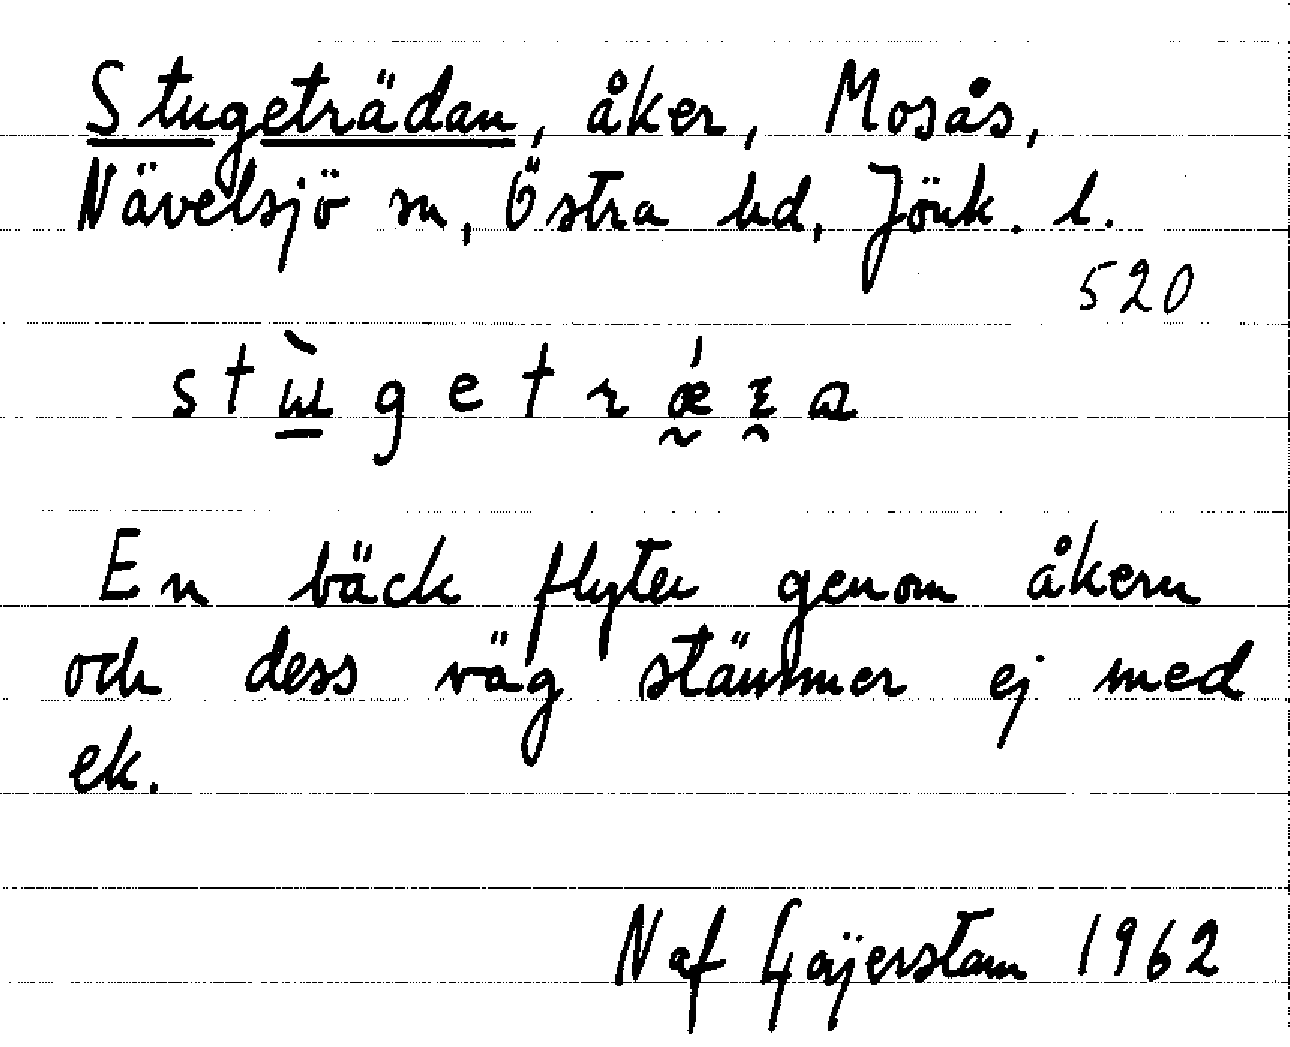 Stugeträdan, åker, Mosås,
Nävelsjö sn, Östra hd, Jönk. l.
520
En bäck flyter genom åkern
och dess väg stämmer ej med
ek.
N af Gajerstam 1962